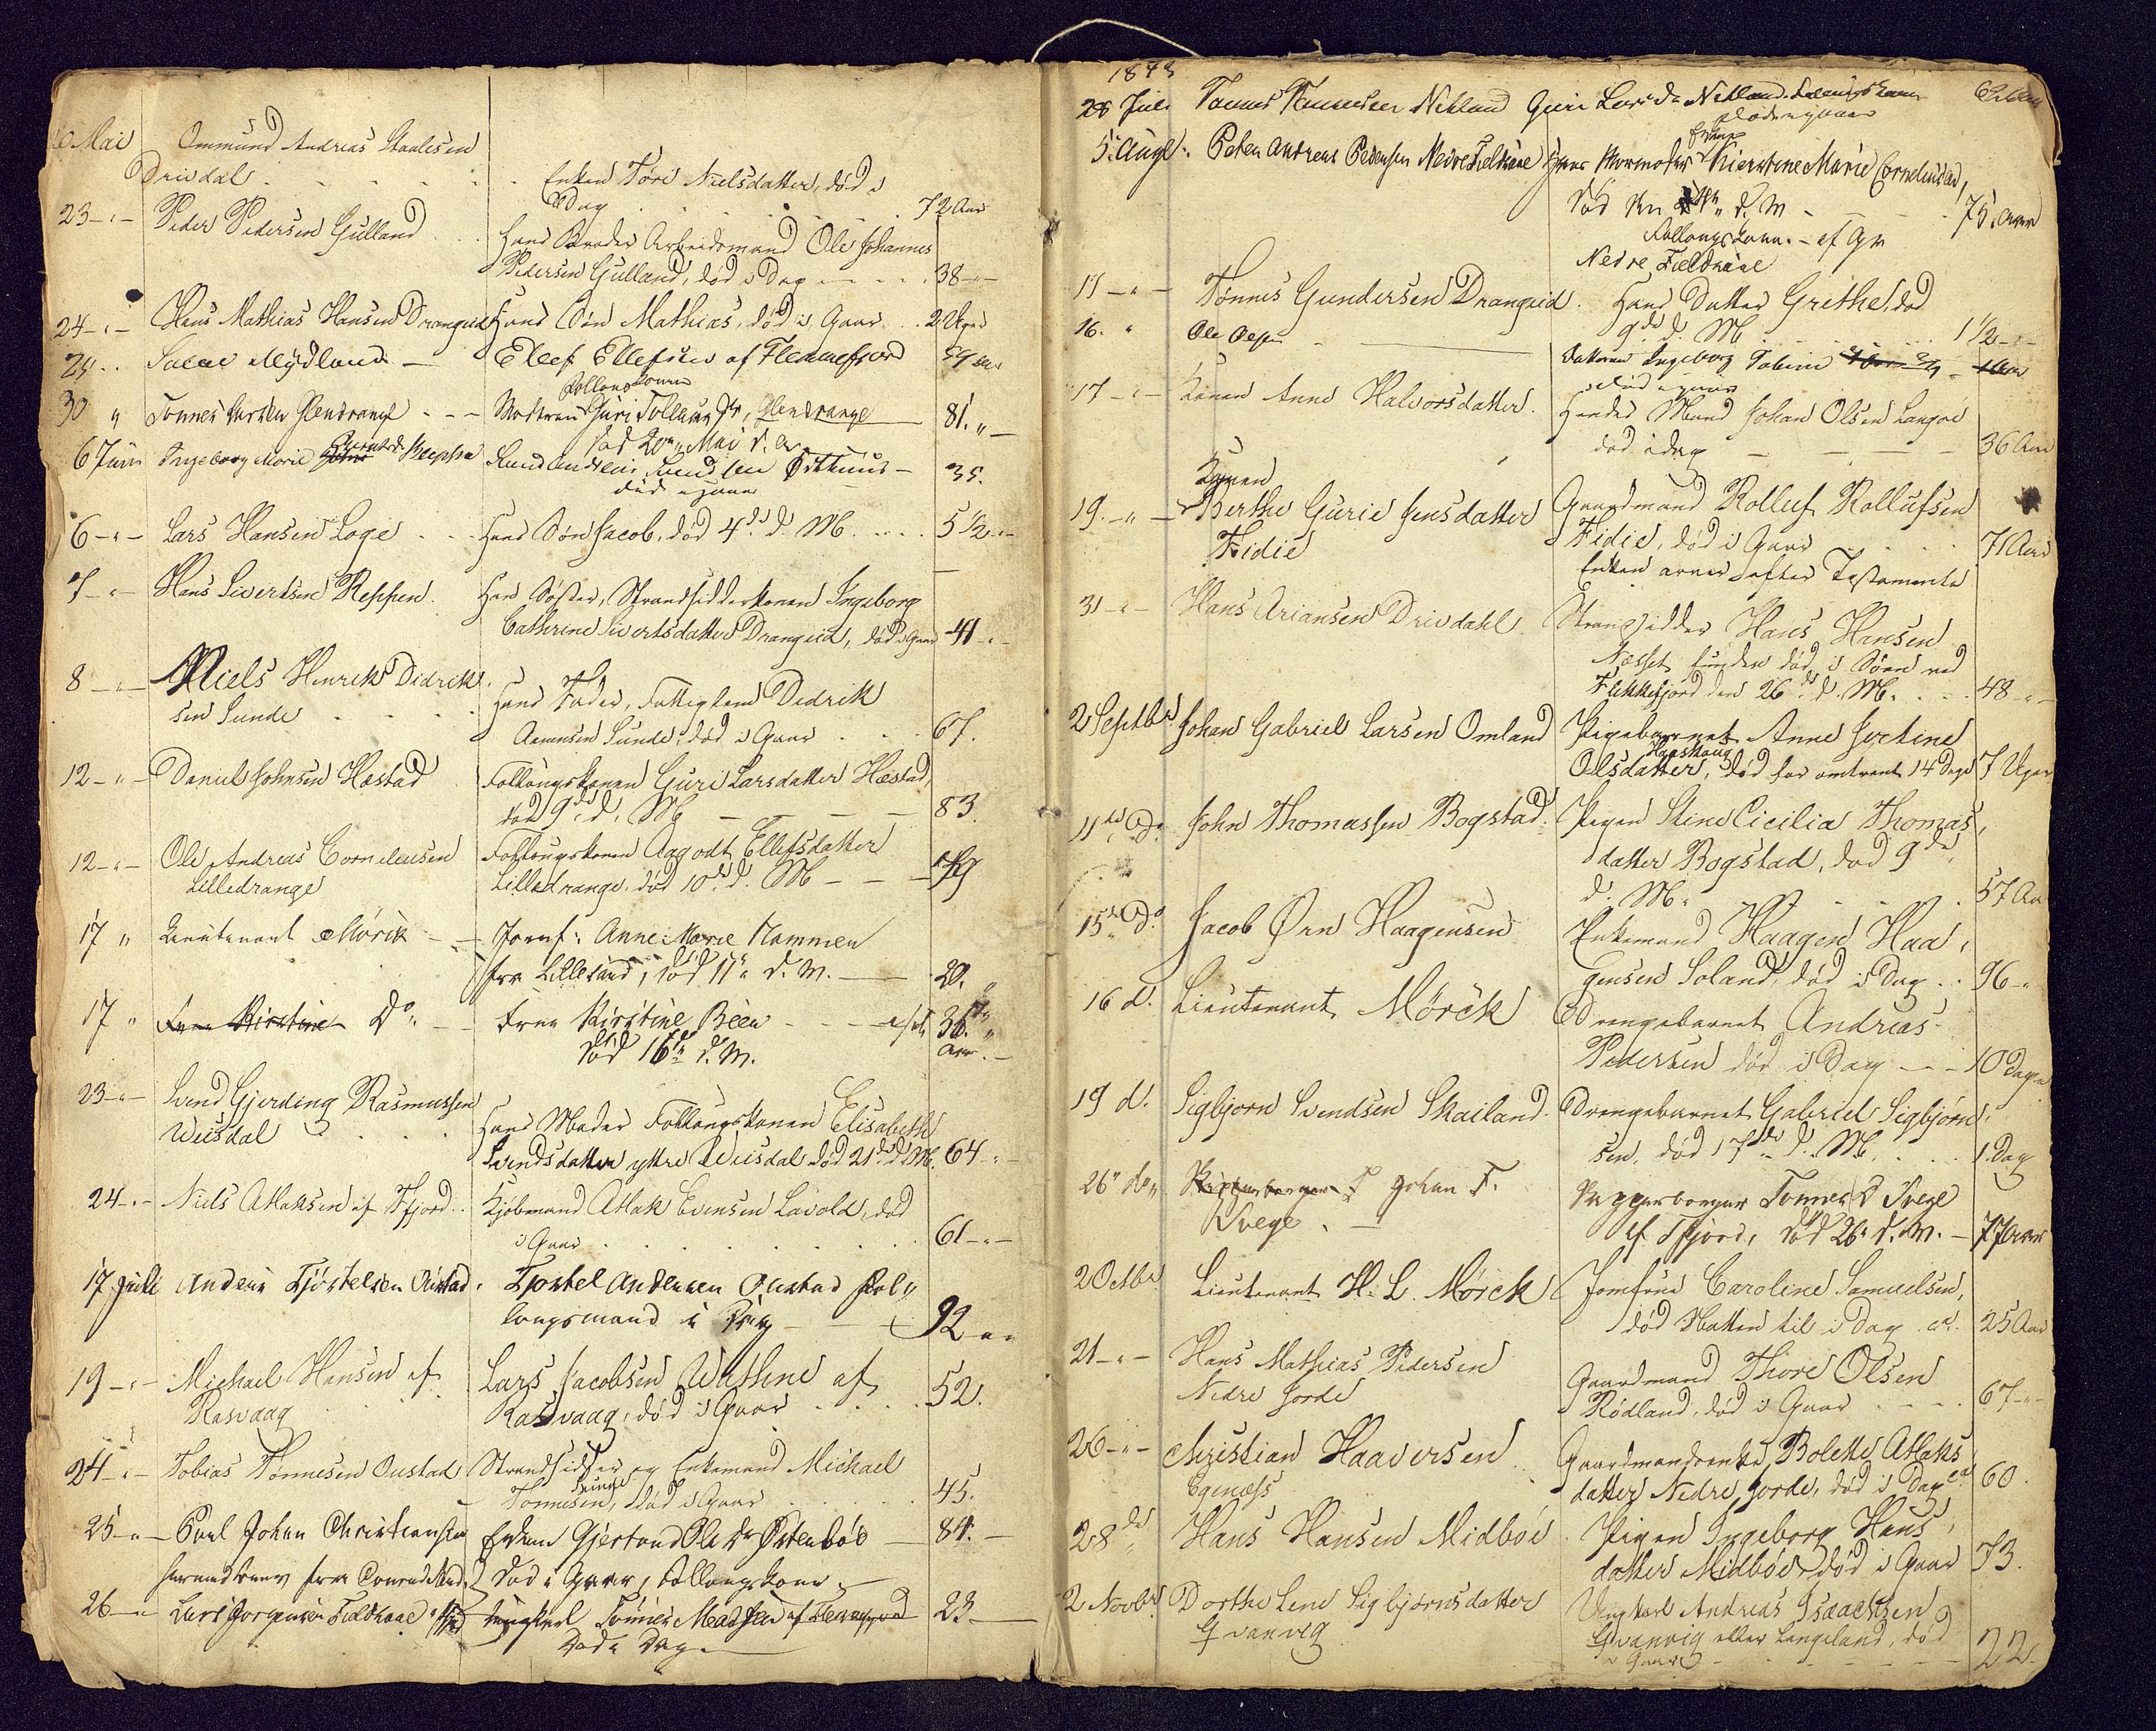 Mai Ommund Andreas Staalesen
Drivdal . . . . . Enken Tore Nielsdatter, död i
Dag . . . . . . 72 Aar
23 - " - Peder Pedersen Gulland . . Hans Broder Arbeidsmand Ole Johannes
Pedersen Gulland, död i Dag - - - . 38 - " -
24 - " - Hans Mathias Hansen Drangeid Hans Sön Mathias, död i Gaar . . 2 Uger
29 . . Salve Mydland - Ellef Ellefsen af Flekkefjord 59 Aar
Follougskonen
30 " Tonnes Larsen Glendrange - - - Moderen Guri Tollevs Dr, Glendrange 81. " -
död 20de Mai d. A
6 Juni Ingeborg Marie Reppen Svend Andreas Svendsen Østhuus - 35.
död igaar
6 - " - Lars Hansen Loge . . . Hans Sön Jacob, död 4de d. M. . . . 5 1/2 - " -
7 - " - Hans Sivertsen Reppen . Hans Söster, Strandsidderkonen Ingeborg
Cathrine Sivertsdatter Drangeid, död i Gaar 41 - " -
8 - " - Niels Henrik Didrik
sen Sunde . . . . Hans Fader, Fattiglem Didrik
Aanensen Sunde, död i Gaar . . . 67.
12 - " - Daniel Johnsen Hæstad Follougskonen Guri Larsdatter Hæstad,
död 9de d. M. - - - - 83.
12 - " - Ole Andreas Corneliussen Follougskonen Aagodt Ellefsdatter
Lilledrange Lilledrange, död 10de d. M - - - 79
17 " Lieutenant Mörck - - Jomf: Anne Marie Hammen
fra Lillesand, död 11te d. M. - 20. "
17 " Fru Kirstine Do. - - Fru Kirstine Been - - - 36 "
död 16de d. M. Aar. -
23 - " - Svend Gjerding Rasmussen
Uusdal . . . . Hans Moder Follougskonen Elisabeth
Svendsdatter yttre Uusdal död 21de d. M. 64 - " -
24 - " - Niels Atlaksen af Ffjord . . Kjöbmand Atlak Evensen Lavold, död
i Gaar . . . . . . . 61 - " -
17 Juli Anders Tjöstelsen Oustad. Tjostel Andersen Oustad Fol"
lougsmand i Dag - - 92 - " -
19 - " - Michael Hansen af Lars Jacobsen Wathne af
Rasvaag . . . . Rasvaag, död i Gaar . . . . 52.
24 - " - Tobias Tönnesen Oustad Strandsidder og Enkemand Michael
Sunde
Tonnesen, död i Gaar . . . 45.
25 - " - Carl Johan Christiansen Enken Gjertrud Ole Dr Østenbö - 84. -
fra död i Gaar, Follougskone -
26 - " Lars Jorgensen Feldskaae Ungkarl Tönnes Madsen af Flekkefjord 23 -
Död i Dag. -
1843
28 Juli Tönnes Tönnessen Netland Guri Lars Dr Netland Follougskone
död igaar
5. Augt. Peter Andreas Pedersen Nedre Feldskaae Hans Mormoder Kierstine Marie Corneliusdr,
Enke
död den d. M - - - 75. Aar
Follougskone. - af Gr
Nedre Feldskaae
11 - " - Tönnes Gundersen Drangeid . Hans Datter Grethe, död
9de d. M . . . . . . 1 1/2 - " -
16. " Ole Olsen - - Datteren Ingeborg Tobine - 1 Aar
död igaar
17 - " - Konen Anne Halvorsdatter. Hendes Mand Johan Olsen Langöe
död idag - - - - 36 Aar
Konen
19 - " - Berthe Gurie Jensdatter Gaardmand Rolluf Rollufsen
Fidie Fidie, död i Gaar . . . . 71 Aar
Enken arver efter Testamente
31 - " - Hans Ariansen Drivdahl . Strandsidder Hans Hansen
Næsset funden död i Söen ved
Flekkefjord den 26de d. M. . . . 48 - " -
2 Septbr Johan Gabriel Larsen Omland Pigebarnet Anne Jertine
Haaskaug
Olsdatter, död for omtrent 14 Dage 7 Uger
11te Do. John Thomassen Bogstad . Pigen Stine Cicilia Thomas,
datter Bogstad, död 9de
d. M. . . . . . 57 Aar
15de Do Jacob Ørn Haagensen Enkemand Haagen Haa,
gensen Soland, död i Dag . . 96 - "
16 d. Lieutenant Mörck Drengebarnet Andreas
Pedersen död i Dag - - - 10 Dage
19 d. Sigbjorn Svendsen Skailand . Drengebarnet Gabriel Sigbjörn,
sen, död 17de d. M. . . . 1. Dag
26" do" Johan F.
Svege . - Skipperborger Tonnes Svege
af Ffjord, död 26 d. M. - 77 Aar
2 Octbr Lieutenant H. L. Mörck Jomfrue Caroline Samuelsen,
död Natten til i Dag cd. 25 Aar
21 - " - Hans Mathias Pedersen Gaardmand Thore Olsen
Nedre Jorde Rödland, död i Gaar . . . . 67 - " -
26 - " - Christian Haaversen . . Gaardmandsenke Bolette Atlaks
Egenæss datter Nedre Jorde, död i Dag cd 60.
28de " Hans Hansen Midböe . Pigen Ingeborg Hans,
datter Midböe, död i Gaar 73.
2 Novbr Dorthe Lene Sigbjörnsdatter Ungkarl Andreas Isaachsen
Qvanvig Qvanvig eller Langeland, död
i Gaar - - - - - 22.